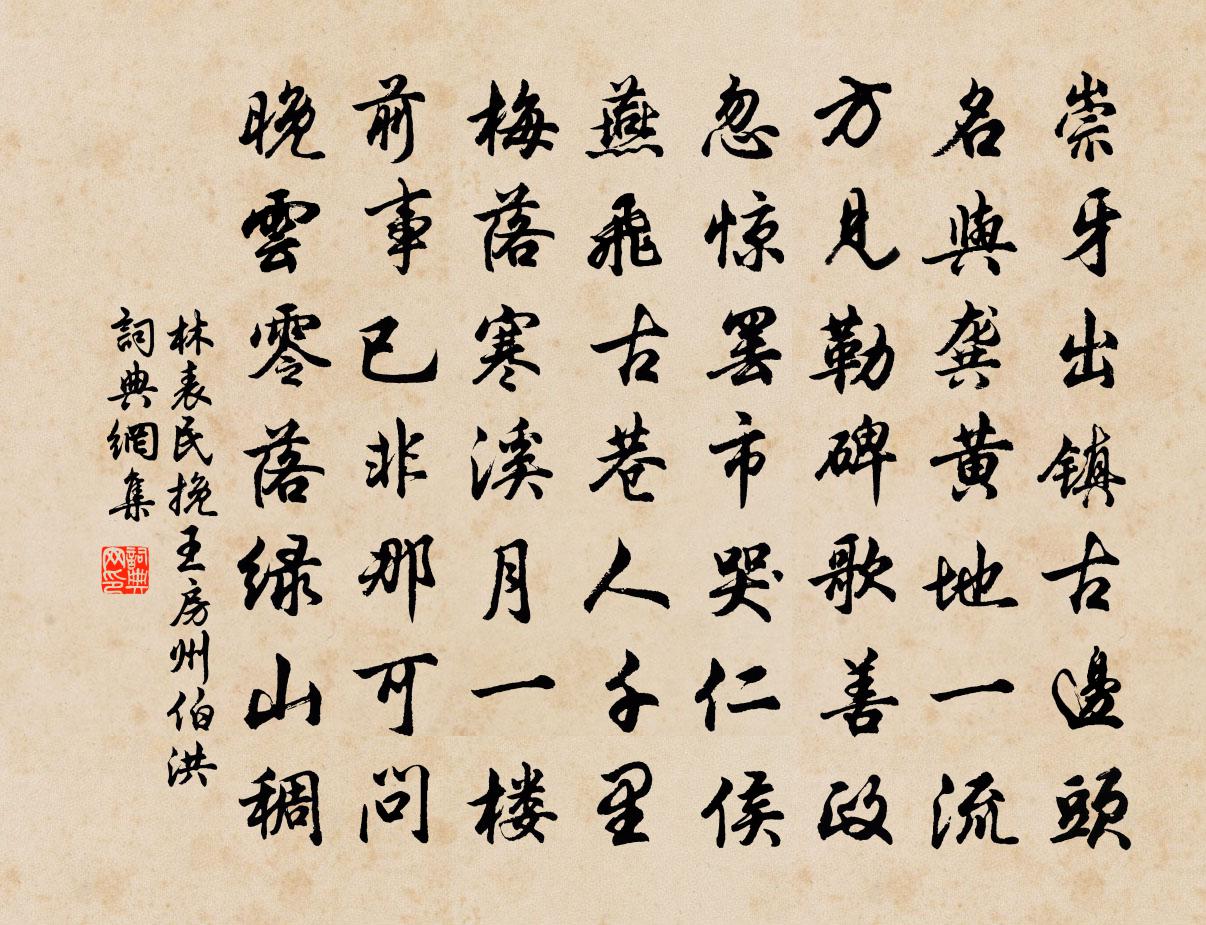 崇牙出镇古邊頭
名與龚黄地一流
方見勒碑歌善政
忽惊罢市哭仁侯
燕飛古巷人千里
梅落寒溪月一楼
前事已非那可問
晚雲零落绿山稠
林表民挽王房州伯洪
詞典網集
詞典网印